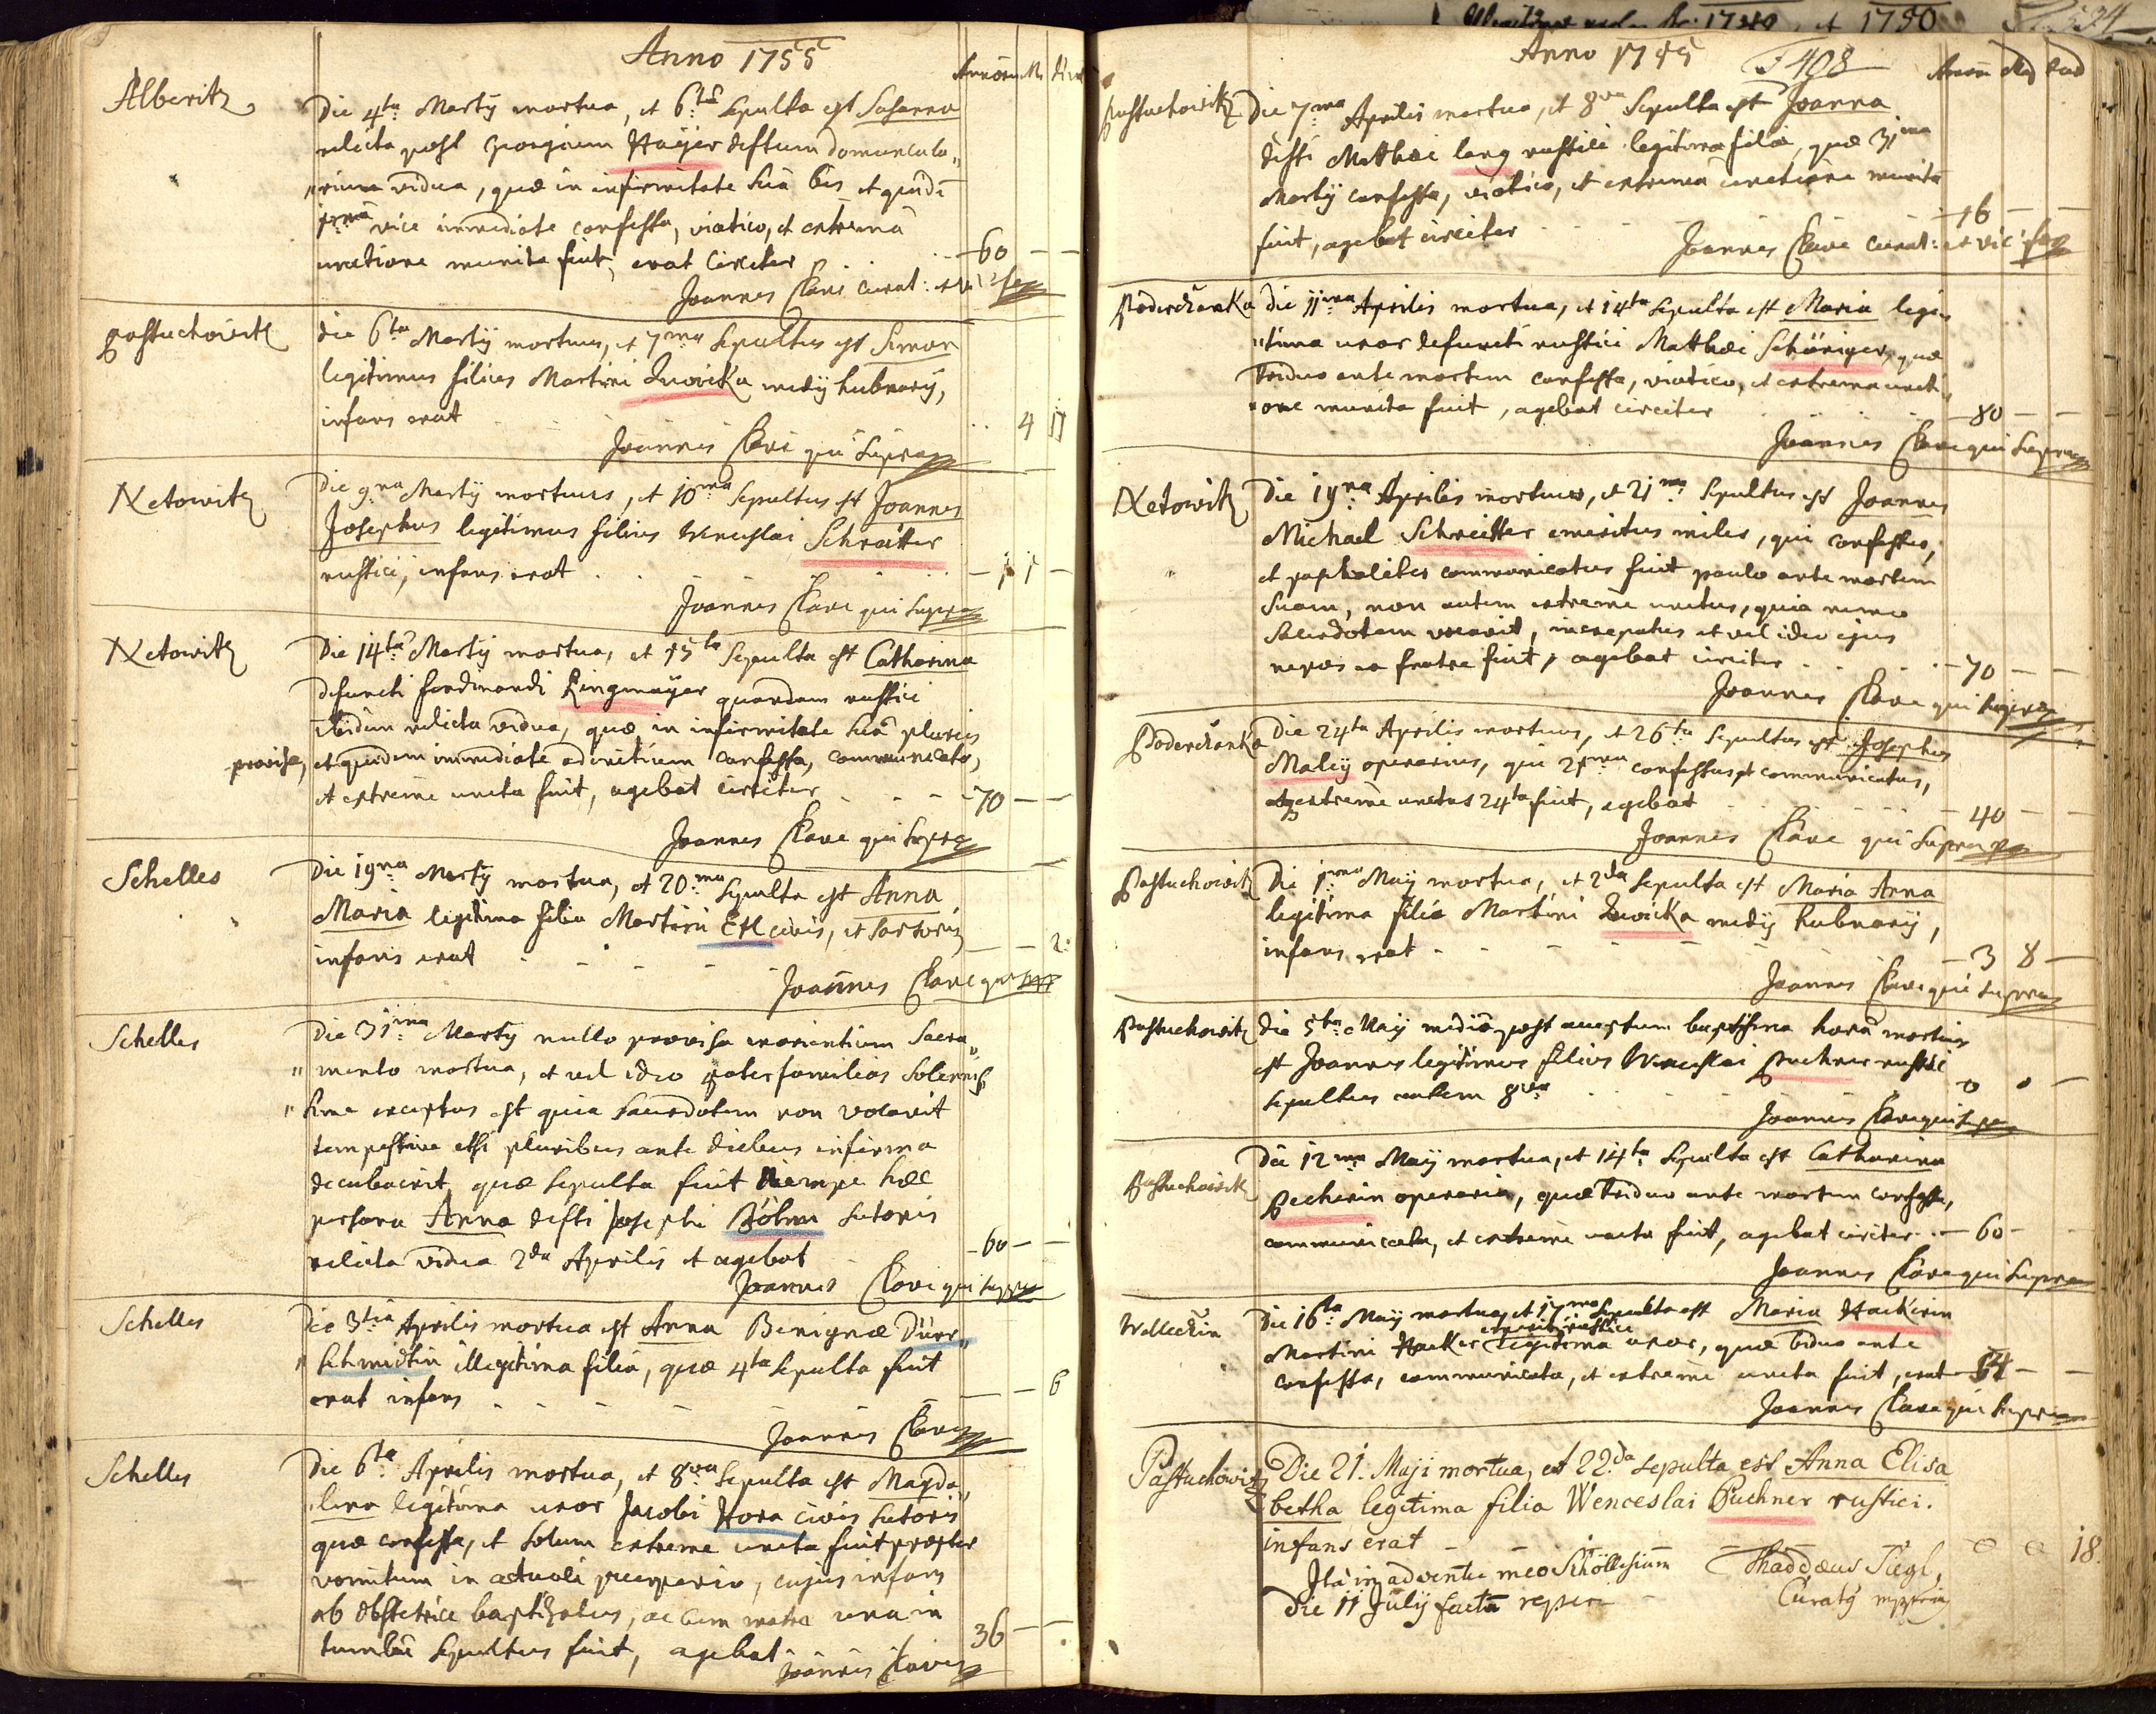 Anno 1755
Annorum M. Dier
Alberitz
Die 4ta Martÿ mortua, et 6ta Sepulta est Susanna
relicta post Georgium Haÿer defctum domuncula„
„rium vidua, quæ in infirmitate Suâ bis et quidē
1mâ vice immediate confessa, viatico, et extremâ
unctione munita fuit, erat Circiter . . . – 60 – –
Joannes Clave curat:
Pastuchowitz
Die 6ta Martÿ mortuus, et 7ma Sepultus est Simon
legitimus filius Martini Zuvicka medÿ hubnarÿ,
infans erat . . . 4 17
Joannes Clave qui Supra
Netowitz
Die 9na Martÿ mortuus, et 10ma Sepultus est Joannes
Josephus legitimus filius Wenceslai Schraitter
rustici, infans erat . . . – 1 1 –
Joannes Clave qui Supra
Netowitz
Die 14ta Martÿ mortua, et 15ta Sepulta est Catharina
defuncti Ferdinandi Ringmaÿer quondam rustici
ibidem relicta vidua, quæ in infirmitate Suâ pluries
provisa, et quidem immediate confessa, communicata,
et extreme uncta fuit, agebat circiter . . . – 70 – –
Joannes Clave qui Supra
Schelles
Die 19na Martÿ mortua, et 20ma Sepulta est Anna
Maria legitima filia Martini Etl civis, et Sartoris
infans erat – – – – – 2.
Joannes Clave qui
Schelles
Die 31ma Martÿ nullo provisa morientium Sacra„
„mento mortua, et vel ideo paterfamilias Solennis„
„sime exceptus est quia Sacerdotem non vocavit
tempestive etsi pluribus ante diebus infirma
decubuerit, quæ Sepulta fuit Nempe hæc
persona Anna defcti Josephi Böhm Sutoris
relicta vidua 2da Aprilis et agebat – 60 – –
Joannes Clave qui Supra
Schelles
Die 3tia Aprilis mortua est Anna Benignæ Dürr„
„Schmidtin illegitima filia, quæ 4ta Sepulta fuit
erat infans – – – – – – 6
Joannes Clave
Schelles
Die 6ta Aprilis mortua, et 8va Sepulta est Magda„
„lena legitima uxor Jacobi Hora civis Sutoris
quæ confessa, et Solum extreme uncta fuit propter
vomitum in actuali puerperio, cujus infans
ab Obstetrice baptizatus, ac cum matre una in
tumbâ Sepultus fuit, agebat 36 – –
Joannes Clave
Anno 1755
F 408
Annor Mens Dier
Pastuchowitz
Die 7ma Aprilis mortua, et 8va Sepulta est Joanna
defcti Matthæi Lang rustici legitima filia, quæ 31ma
Martÿ confessa, viatico, et extrema unctione munita
fuit, agebat circiter . . . – 16 – –
Joannes Clave curat: et vic:
Poderschanka
Die 11ma Aprilis mortua, et 14ta Sepulta est Maria legi„
„tima uxor defuncti rustici Matthæi Schöniger, quæ
triduo ante mortem confessa, viatico, et extrema uncti„
„one munita fuit, agebat circiter . . . – 80 – –
Joannes Clave qui Supra
Netowitz
Die 19na Aprilis mortuus, et 21ma Sepultus est Joannes
Michael Schreitter emeritus miles, qui confessus,
et communicatus fuit paulo ante mortem
Suam, non autem extreme unctus, quia nemo
Sacerdotem vocavit, increpatus et vel ideo ejus
nepos ex fratre fuit, agebat circiter . . . – 70 – –
Joannes Clave qui Supra
Poderschanka
Die 24ta Aprilis mortuus, et 26ta Sepultus est Josephus
Malÿ operarius, qui 21ma confessus, et communicatus,
extreme unctus 24ta fuit, agebat – 40 –
Joannes Clave qui Supra
Pastuchowitz
Die 1ma Maÿ mortua, et 2da Sepulta est Maria Anna
legitima filia Martini Zuvicka medÿ hubnarÿ,
infans erat – – – – 3 8 –
Joannes Clave qui Supra
Pastuchowitz
Die 5ta Maÿ mediâ post acceptum baptisma horâ mortuus
est Joannes legitimus filius Wenceslai Puchner rustici
Sepultus autem 8va . . . 0 0 –
Joannes Clave qui Supra
Pastuchowitz
Die 12ma Maÿ mortua, et 14ta Sepulta est Catharina
Pecherin operaria, quæ triduo ante mortem confessa,
communicata, et extreme uncta fuit, agebat circiter . – 60 –
Joannes Clave qui Supra
Welletzin
Die 16ta Maÿ mortua, et 17ma Sepulta est Maria Hackerin
Martini Hacker legitima uxor, quæ biduo ante
confessa, communicata, et extreme uncta fuit, erat – 64 – –
Joannes Clave qui Supra
Pastuchowitz
Die 21. Maji mortua, et 22da Sepulta est Anna Elisa
betha legitima filia Wenceslai Puchner rustici.
infans erat – – – – 0 0 18.
Ita in adventu meo Schöllesium Thaddæus Siegl,
Die 11 Julÿ factū reperi – Curatg mppria